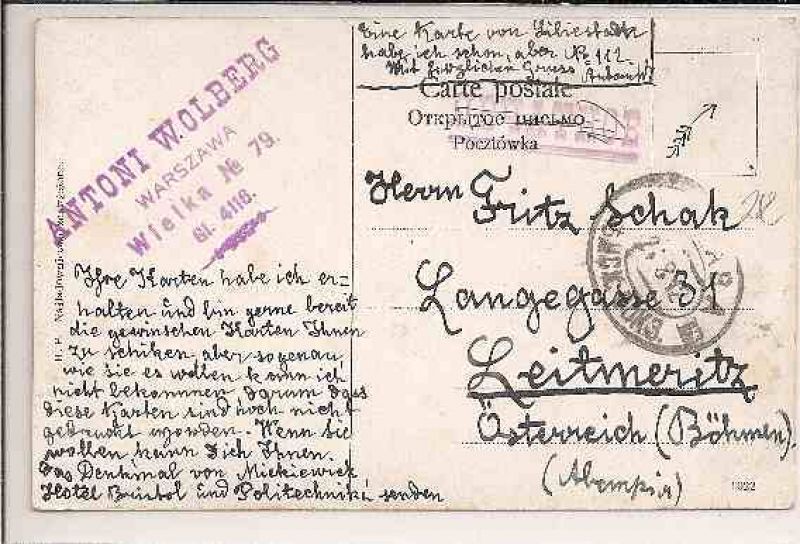 Eine Karte von
habe ich schon, aber № 112.
Mit herzlichen Gruss
Carte postale
Открытое письмо
Pocztówka
ANTONI WOLBERG
WARSZAWA
Wielka № 79.
Herrn Fritz Schak
Langegasse 31
Leitmeritz
Österreich (Böhmen).
Ihre Karten habe ich er=
halten und bin gerne bereit
die gewinschen Karten Ihnen
zu schiken, aber sogenau,
wie sie es wollen kann ich
nicht bekommen darum dass
diese Karten sind noch nicht
gedruckt worden. Wenn sie
wollen kann ich Ihnen.
Das Denkmal von Mickiewicz
Hotel Bristol und Politechnika senden